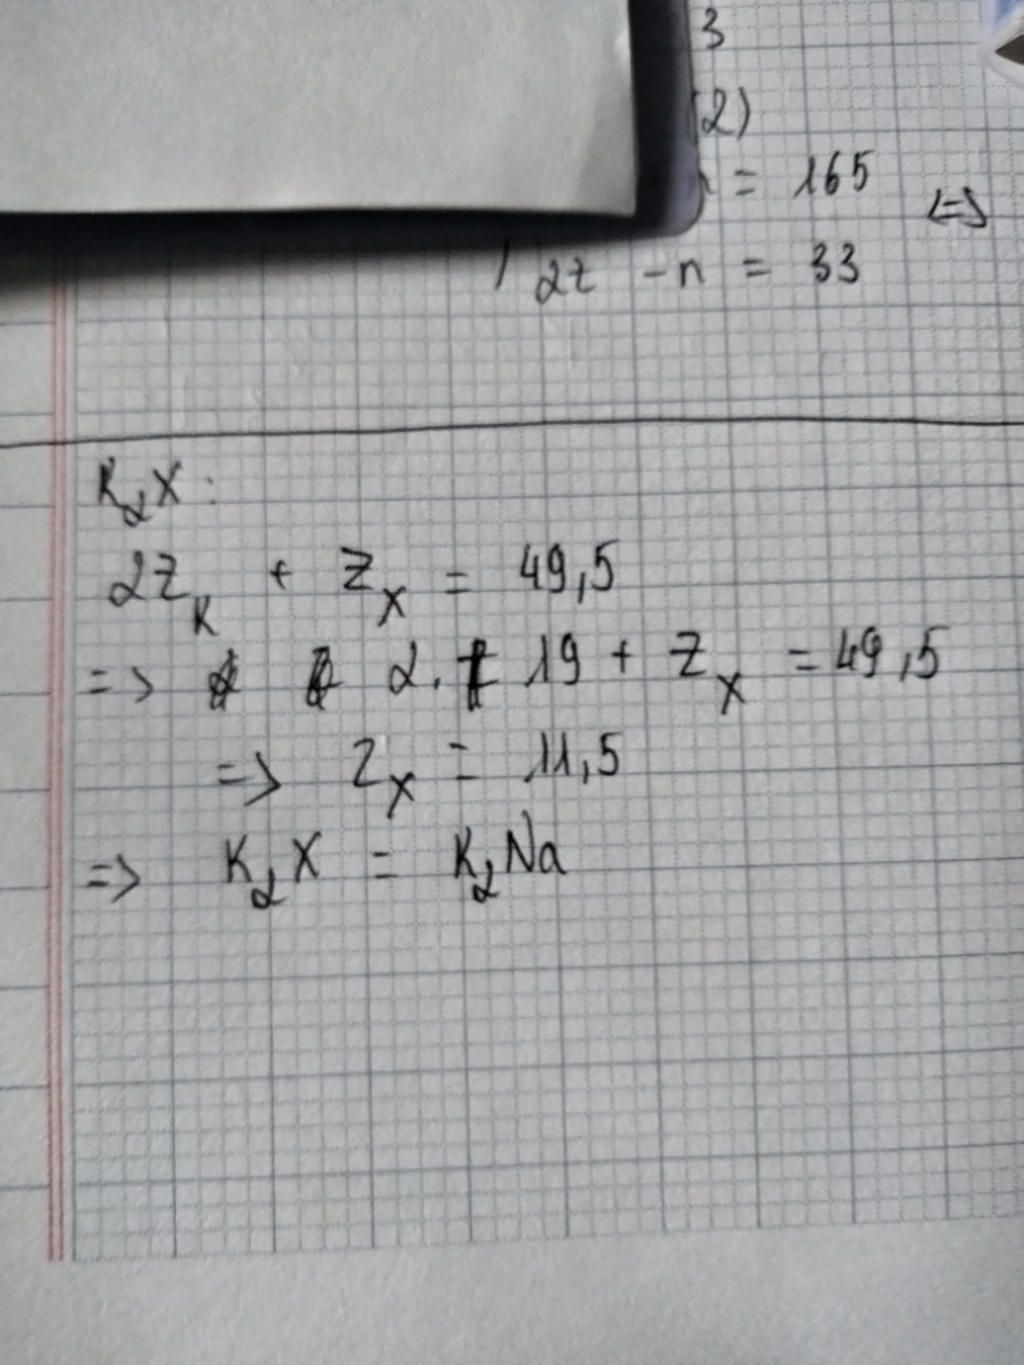 3
(2)
= 165 <=>
2z - n = 33
K₂X :
2Z_K + Z_X = 49,5
=> 2. 19 + Z_X = 49,5
=> Z_X = 11,5
=> K₂X = K₂Na